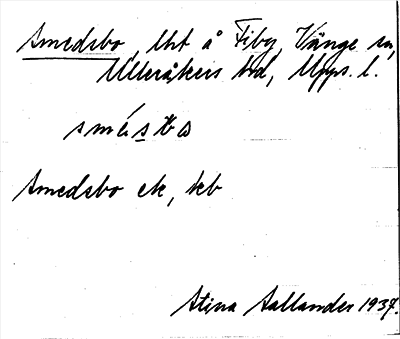 Smedsbo, lht å Fiby, Vänge sn,
Ulleråkers hd, Upps. l.
smésta
Smedsbo ek, keb
Stina Sallander 1937.